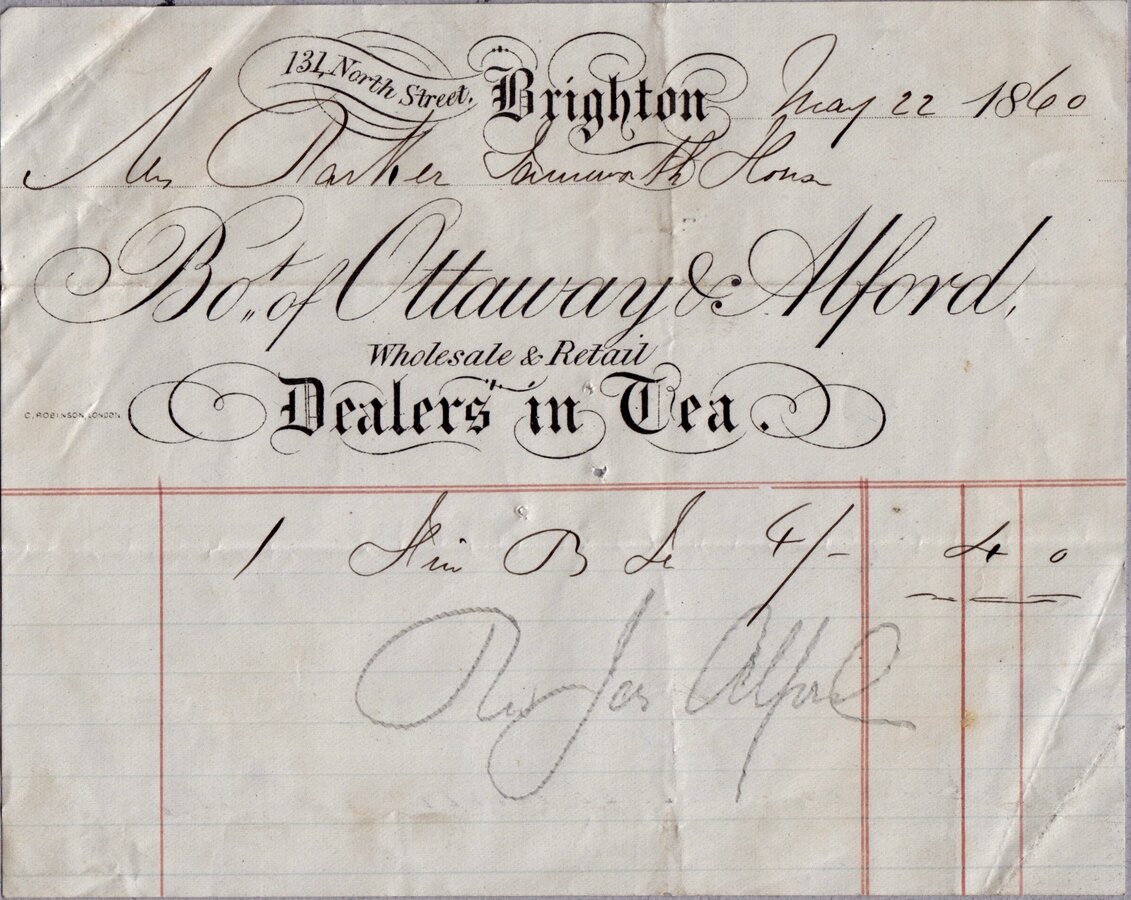 131, North Street, Brighton May 22 1860
Mrs Parker Tamworth House
Bot. of Ottaway & Alford,
Wholesale & Retail
Dealers in Tea.
C. ROBINSON, LONDON.
1 B 4/- 4 0
Jas Alford